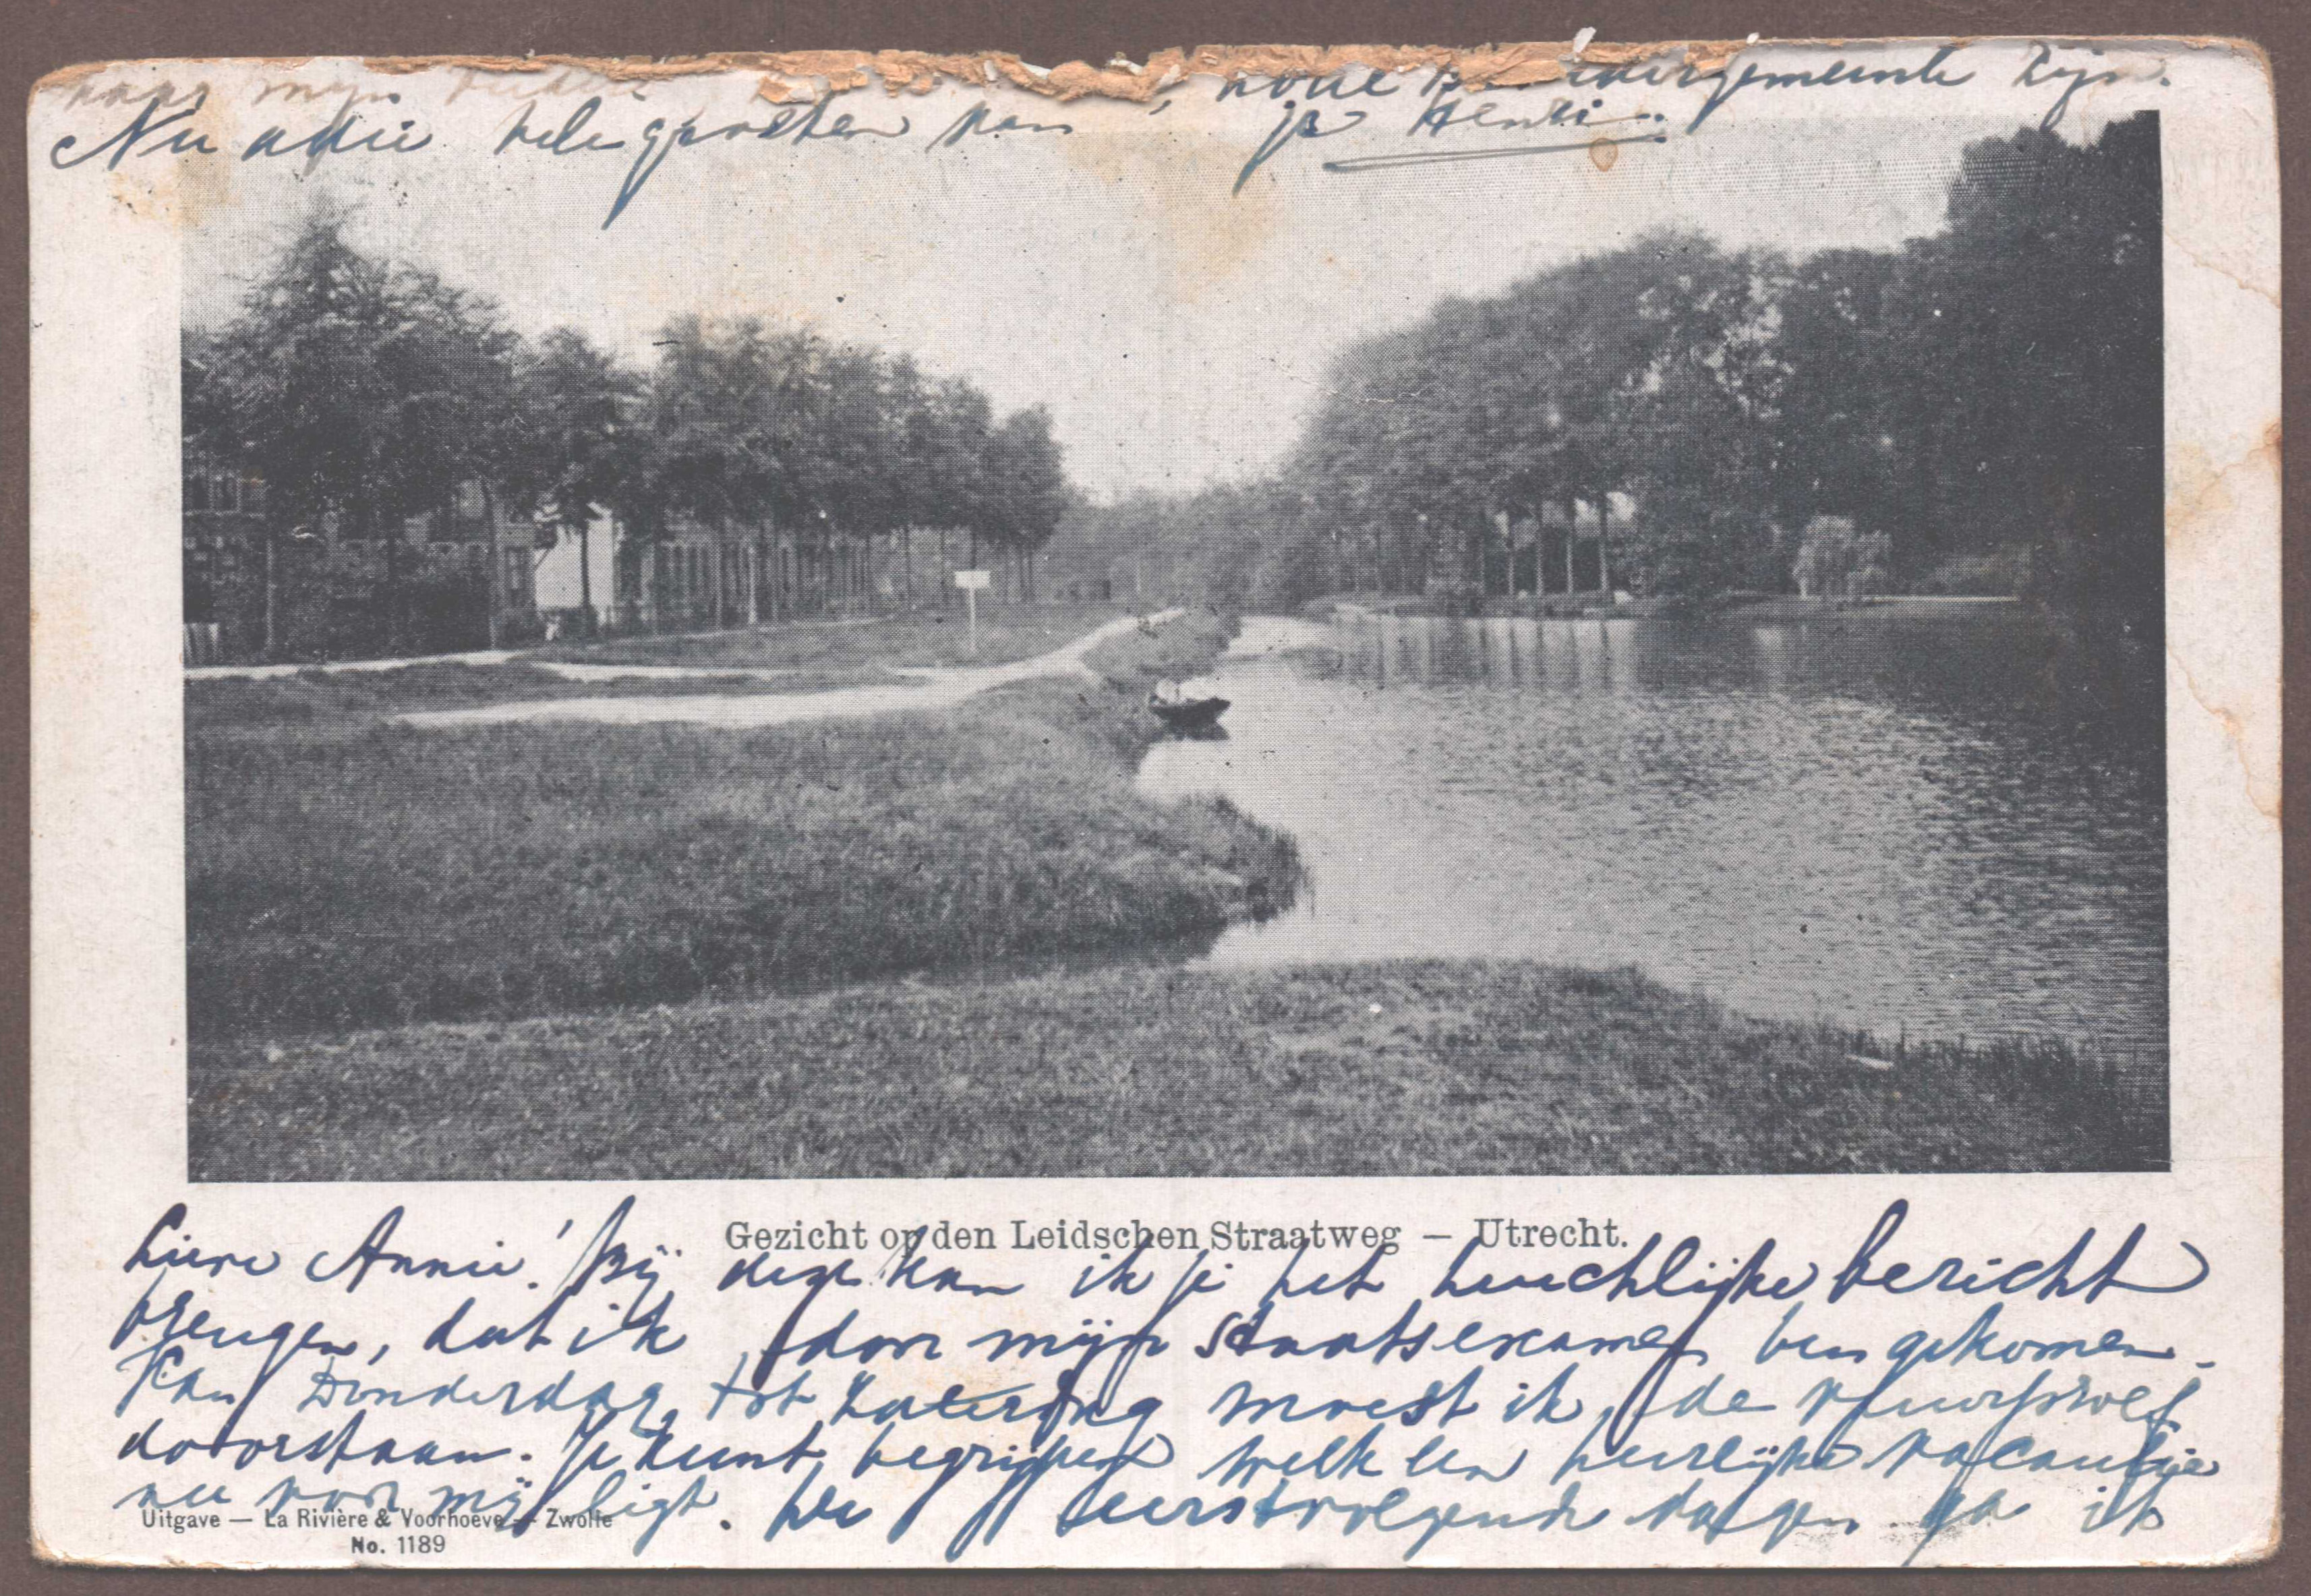 naar mijn
Nu adie vele groeten van je Henri.
Gezicht op den Leidschen Straatweg — Utrecht.
Lieve Annie! Bij deze kan ik je het heuchlijke bericht
brengen, dat ik door mijn staatsexamen ben gekomen.
Van Donderdag tot Zaterdag moest ik de vuurproef
doorstaan. Je kunt begrijpen welk een heerlijke vacantie
nu voor mij ligt. De eerstvolgende dagen ga ik
Uitgave — La Rivière & Voorhoeve — Zwolle
No. 1189